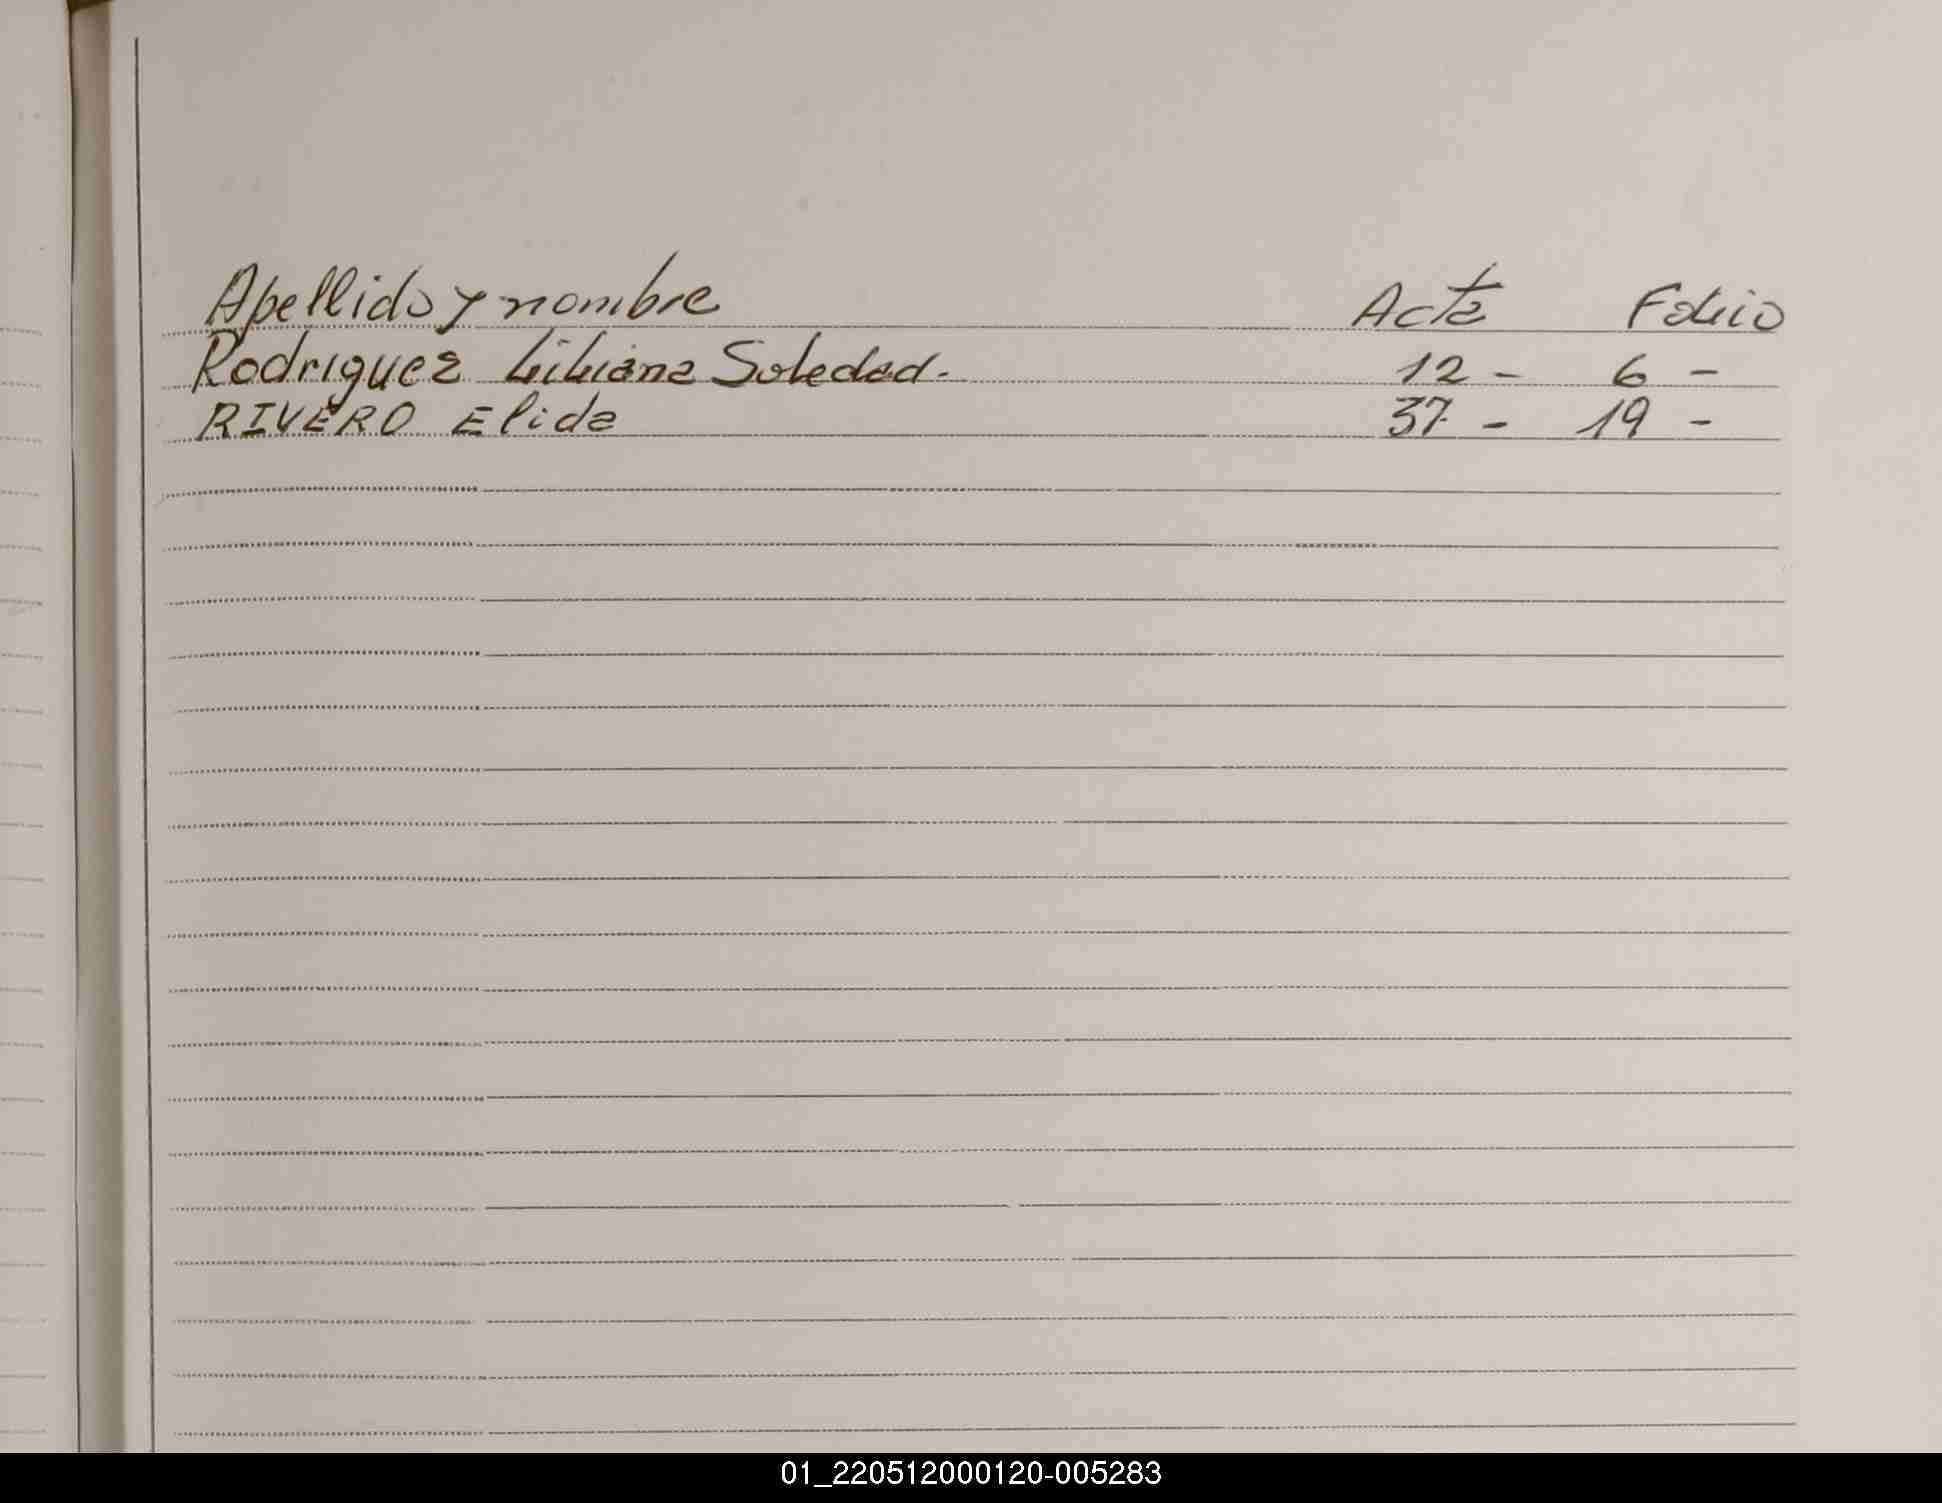 Apellido y nombre Acta Folio
Rodriguez Liliana Soledad. 12 - 6 -
RIVERO Elida 37 - 19 -
01_220512000120-005283